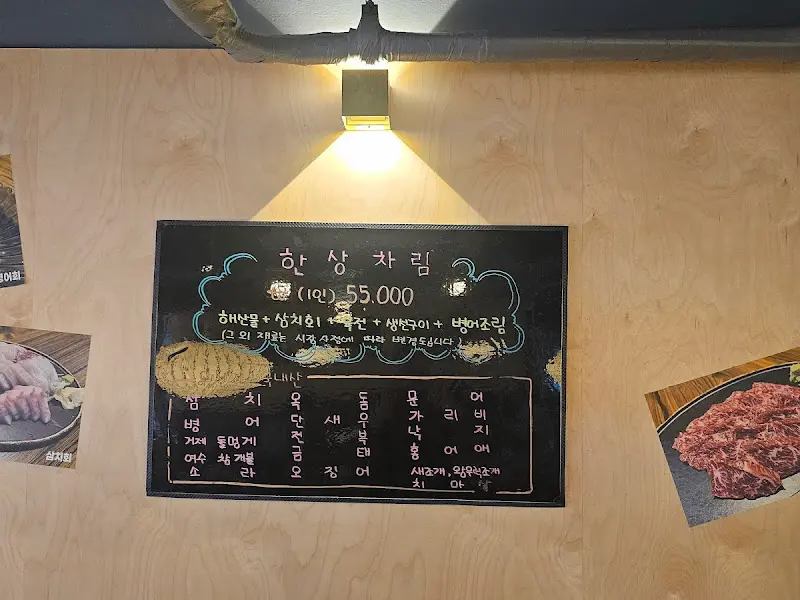 한 상 차 림
(1인) 55.000
해산물 + 삼치회 + 육전 + 생선구이 + 병어조림
(그 외 재료는 시장 사정에 따라 변경됩니다)
국내산
삼 치 옥 돔 문 어
병 어 단 새 우 가 리 비
거제 돌멍게 전 복 낙 지
여수 참개불 금 태 홍 어 애
소 라 오 징 어 새조개, 왕우럭조개
치 마 살
병어회
삼치회